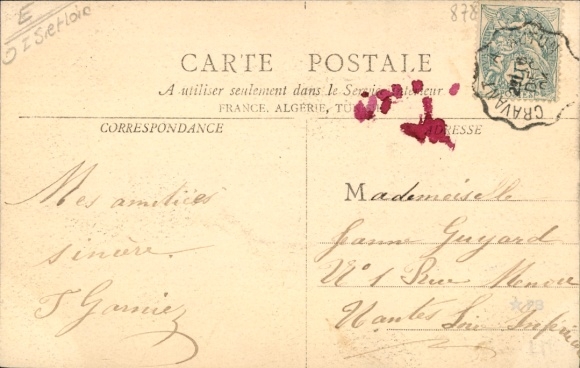 E
I Set Loir
878
CARTE POSTALE
A utiliser seulement dans le Service Intérieur
FRANCE, ALGÉRIE,
CORRESPONDANCE
ADRESSE
Mes amitiés
sincère.
Mademoiselle
Jeanne Guyard
N° 1 Rue Menou
Nantes Loire Inférieure